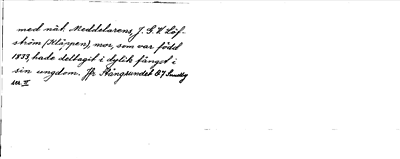 med nät. Meddelarens, J. G. V. Löf-
ström (Kläppen), mor, som var född
1833, hade deltagit i dylik fångst i
sin ungdom. Jfr Stångsundet